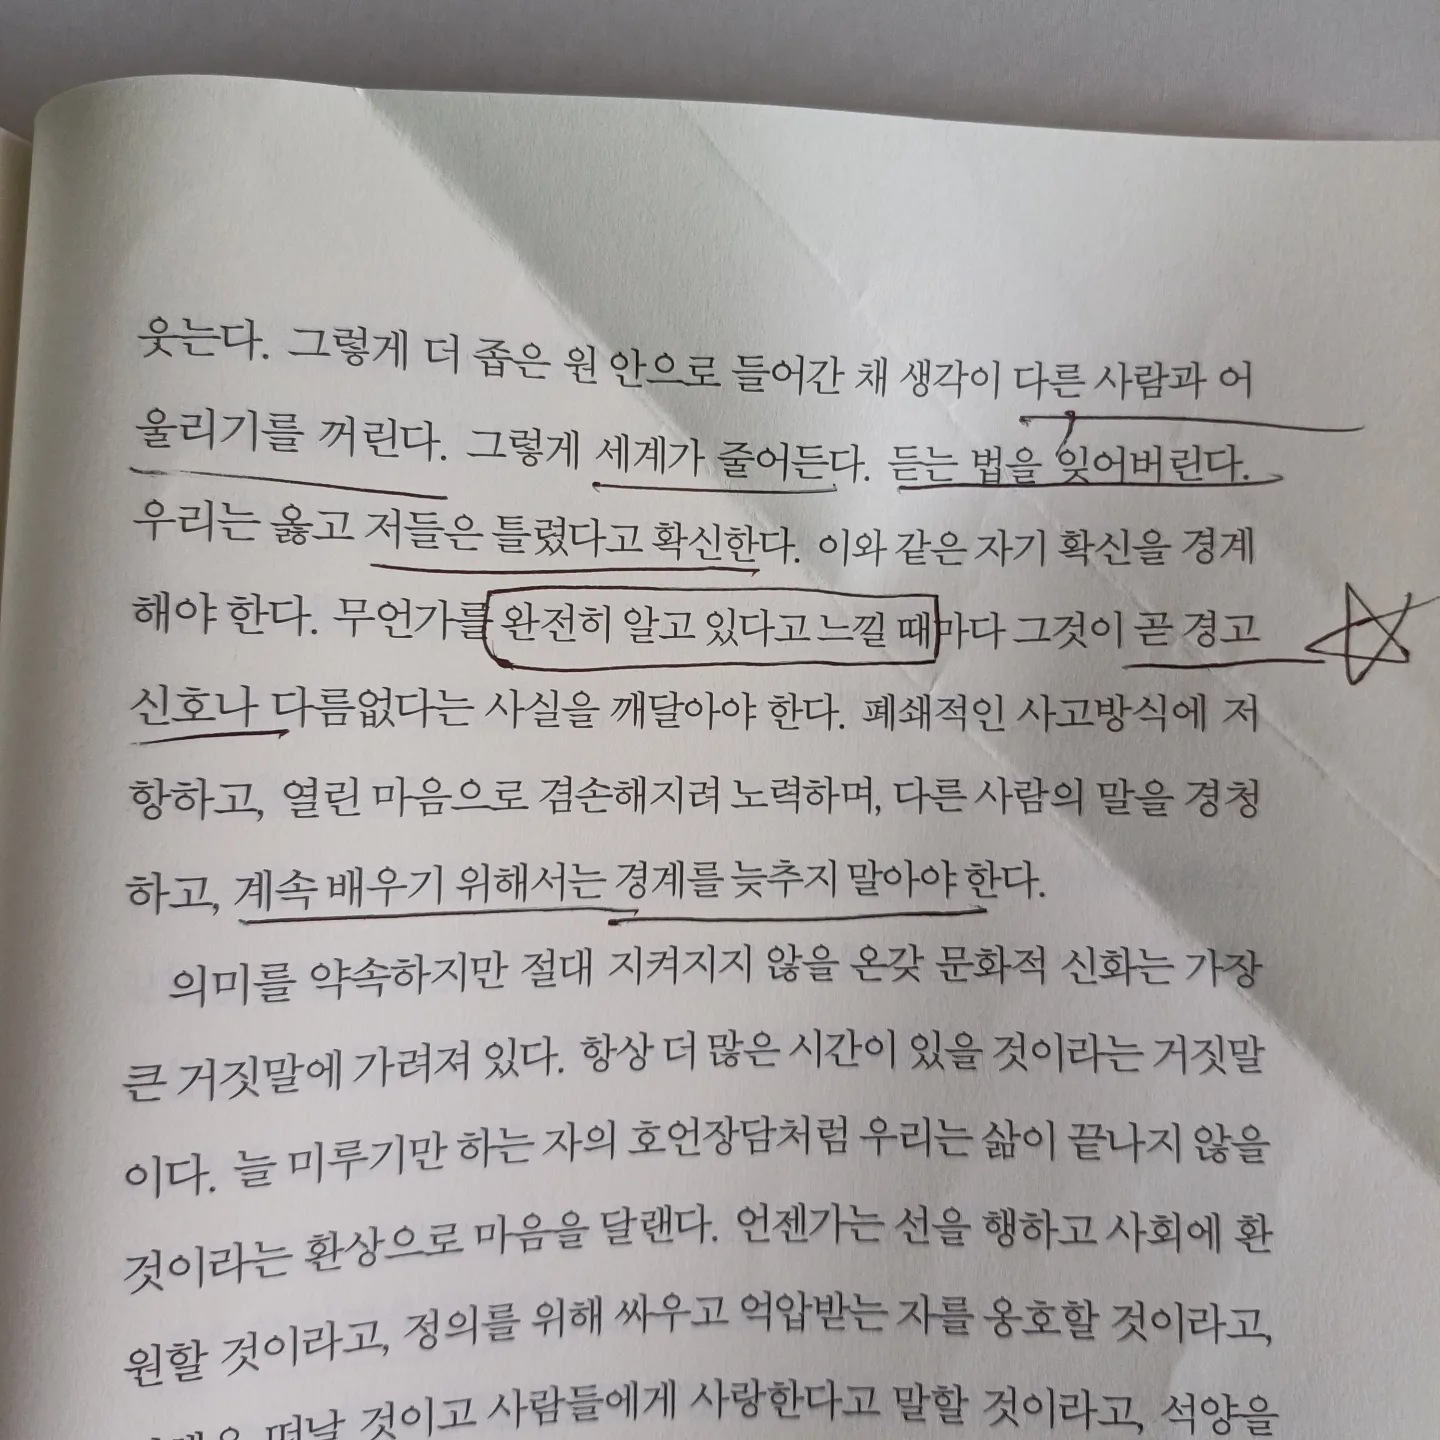 웃는다. 그렇게 더 좁은 원 안으로 들어간 채 생각이 다른 사람과 어
울리기를 꺼린다. 그렇게 세계가 줄어든다. 듣는 법을 잊어버린다.
우리는 옳고 저들은 틀렸다고 확신한다. 이와 같은 자기 확신을 경계
해야 한다. 무언가를 완전히 알고 있다고 느낄 때마다 그것이 곧 경고
신호나 다름없다는 사실을 깨달아야 한다. 폐쇄적인 사고방식에 저
항하고, 열린 마음으로 겸손해지려 노력하며, 다른 사람의 말을 경청
하고, 계속 배우기 위해서는 경계를 늦추지 말아야 한다.
의미를 약속하지만 절대 지켜지지 않을 온갖 문화적 신화는 가장
큰 거짓말에 가려져 있다. 항상 더 많은 시간이 있을 것이라는 거짓말
이다. 늘 미루기만 하는 자의 호언장담처럼 우리는 삶이 끝나지 않을
것이라는 환상으로 마음을 달랜다. 언젠가는 선을 행하고 사회에 환
원할 것이라고, 정의를 위해 싸우고 억압받는 자를 옹호할 것이라고,
떠날 것이고 사람들에게 사랑한다고 말할 것이라고, 석양을